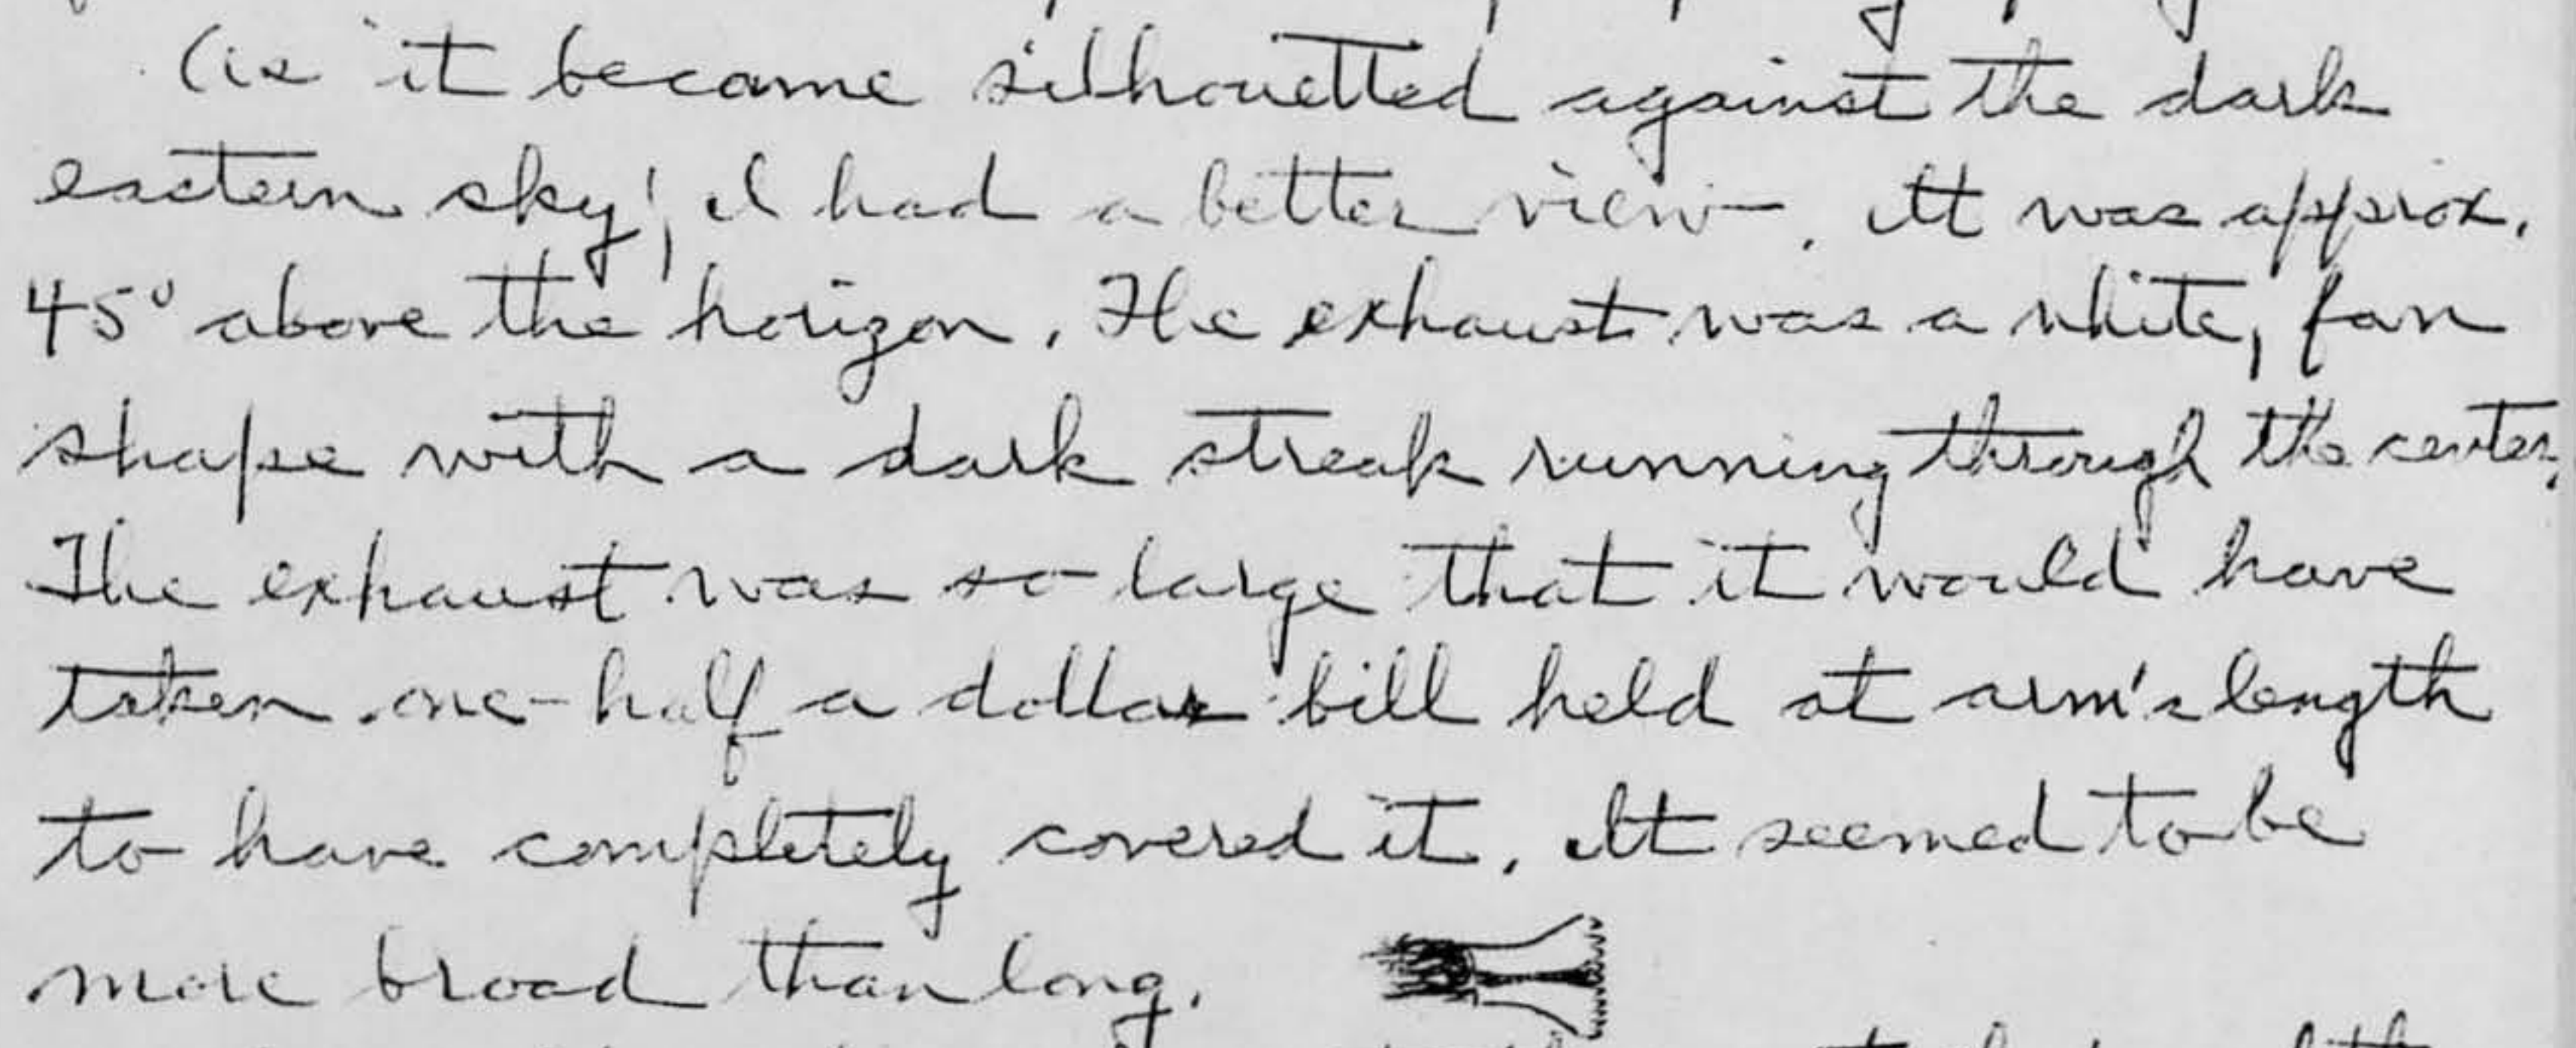 As it became silhouetted against the dark
eastern sky, I had a better view. It was approx.
45° above the horizon. The exhaust was a white, fan
shape with a dark streak running through the center.
The exhaust was so large that it would have
taken one-half a dollar bill held at arm's length
to have completely covered it. It seemed to be
more broad than long.